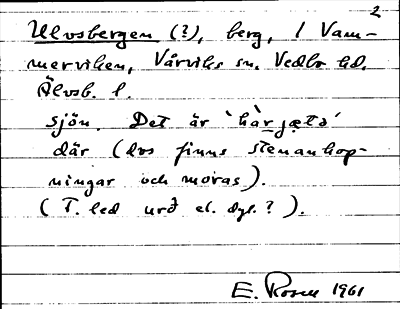 2
Ulvsbergen (?), berg, / Vam-
merviken, Vårviks sn. Vedbo hd.
Älvsb. l.
sjön. Det är 'hàrjætɘ'
där (dvs finns stenanhop-
ningar och moras).
(T. led urð el. dyl. ?).
E. Rosen 1961